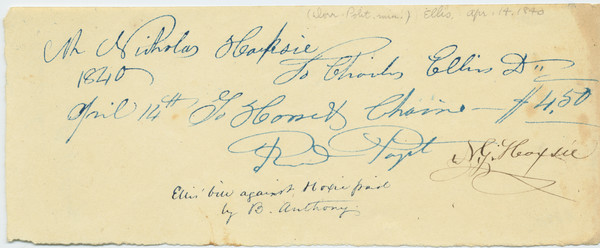 Ellis, Apr. 14, 1840
Mr Nicholas Hoxsie
1840 To Charles Ellis Dr
April 14th To Horse & Chaise — $4.50
Recd Payt N. G. Hoxsie
Ellis' bill against Hoxie paid
by B. Anthony